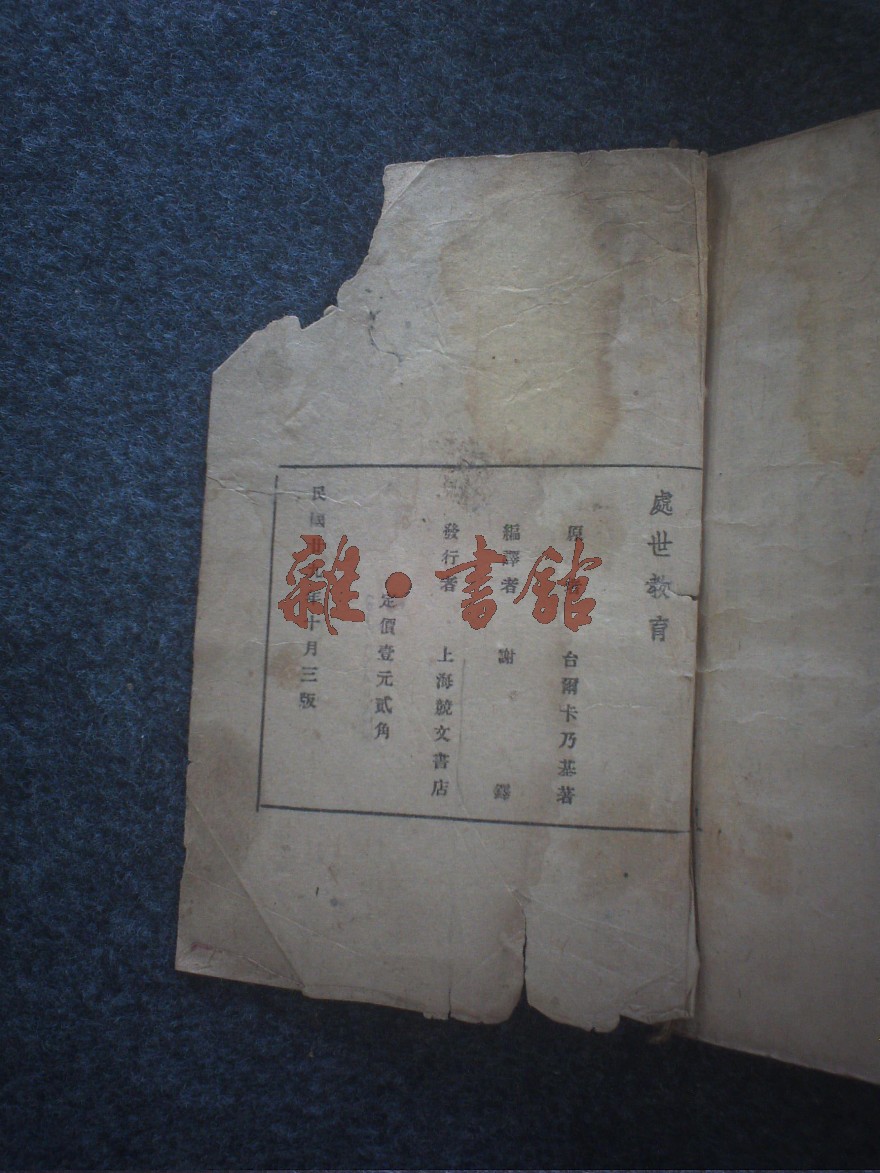 處世教育
原著者 台爾卡乃基著
編譯者 謝鐸
發行者 上海競文書店
定價壹元貳角
民國卅九年十月三版
雜·書館